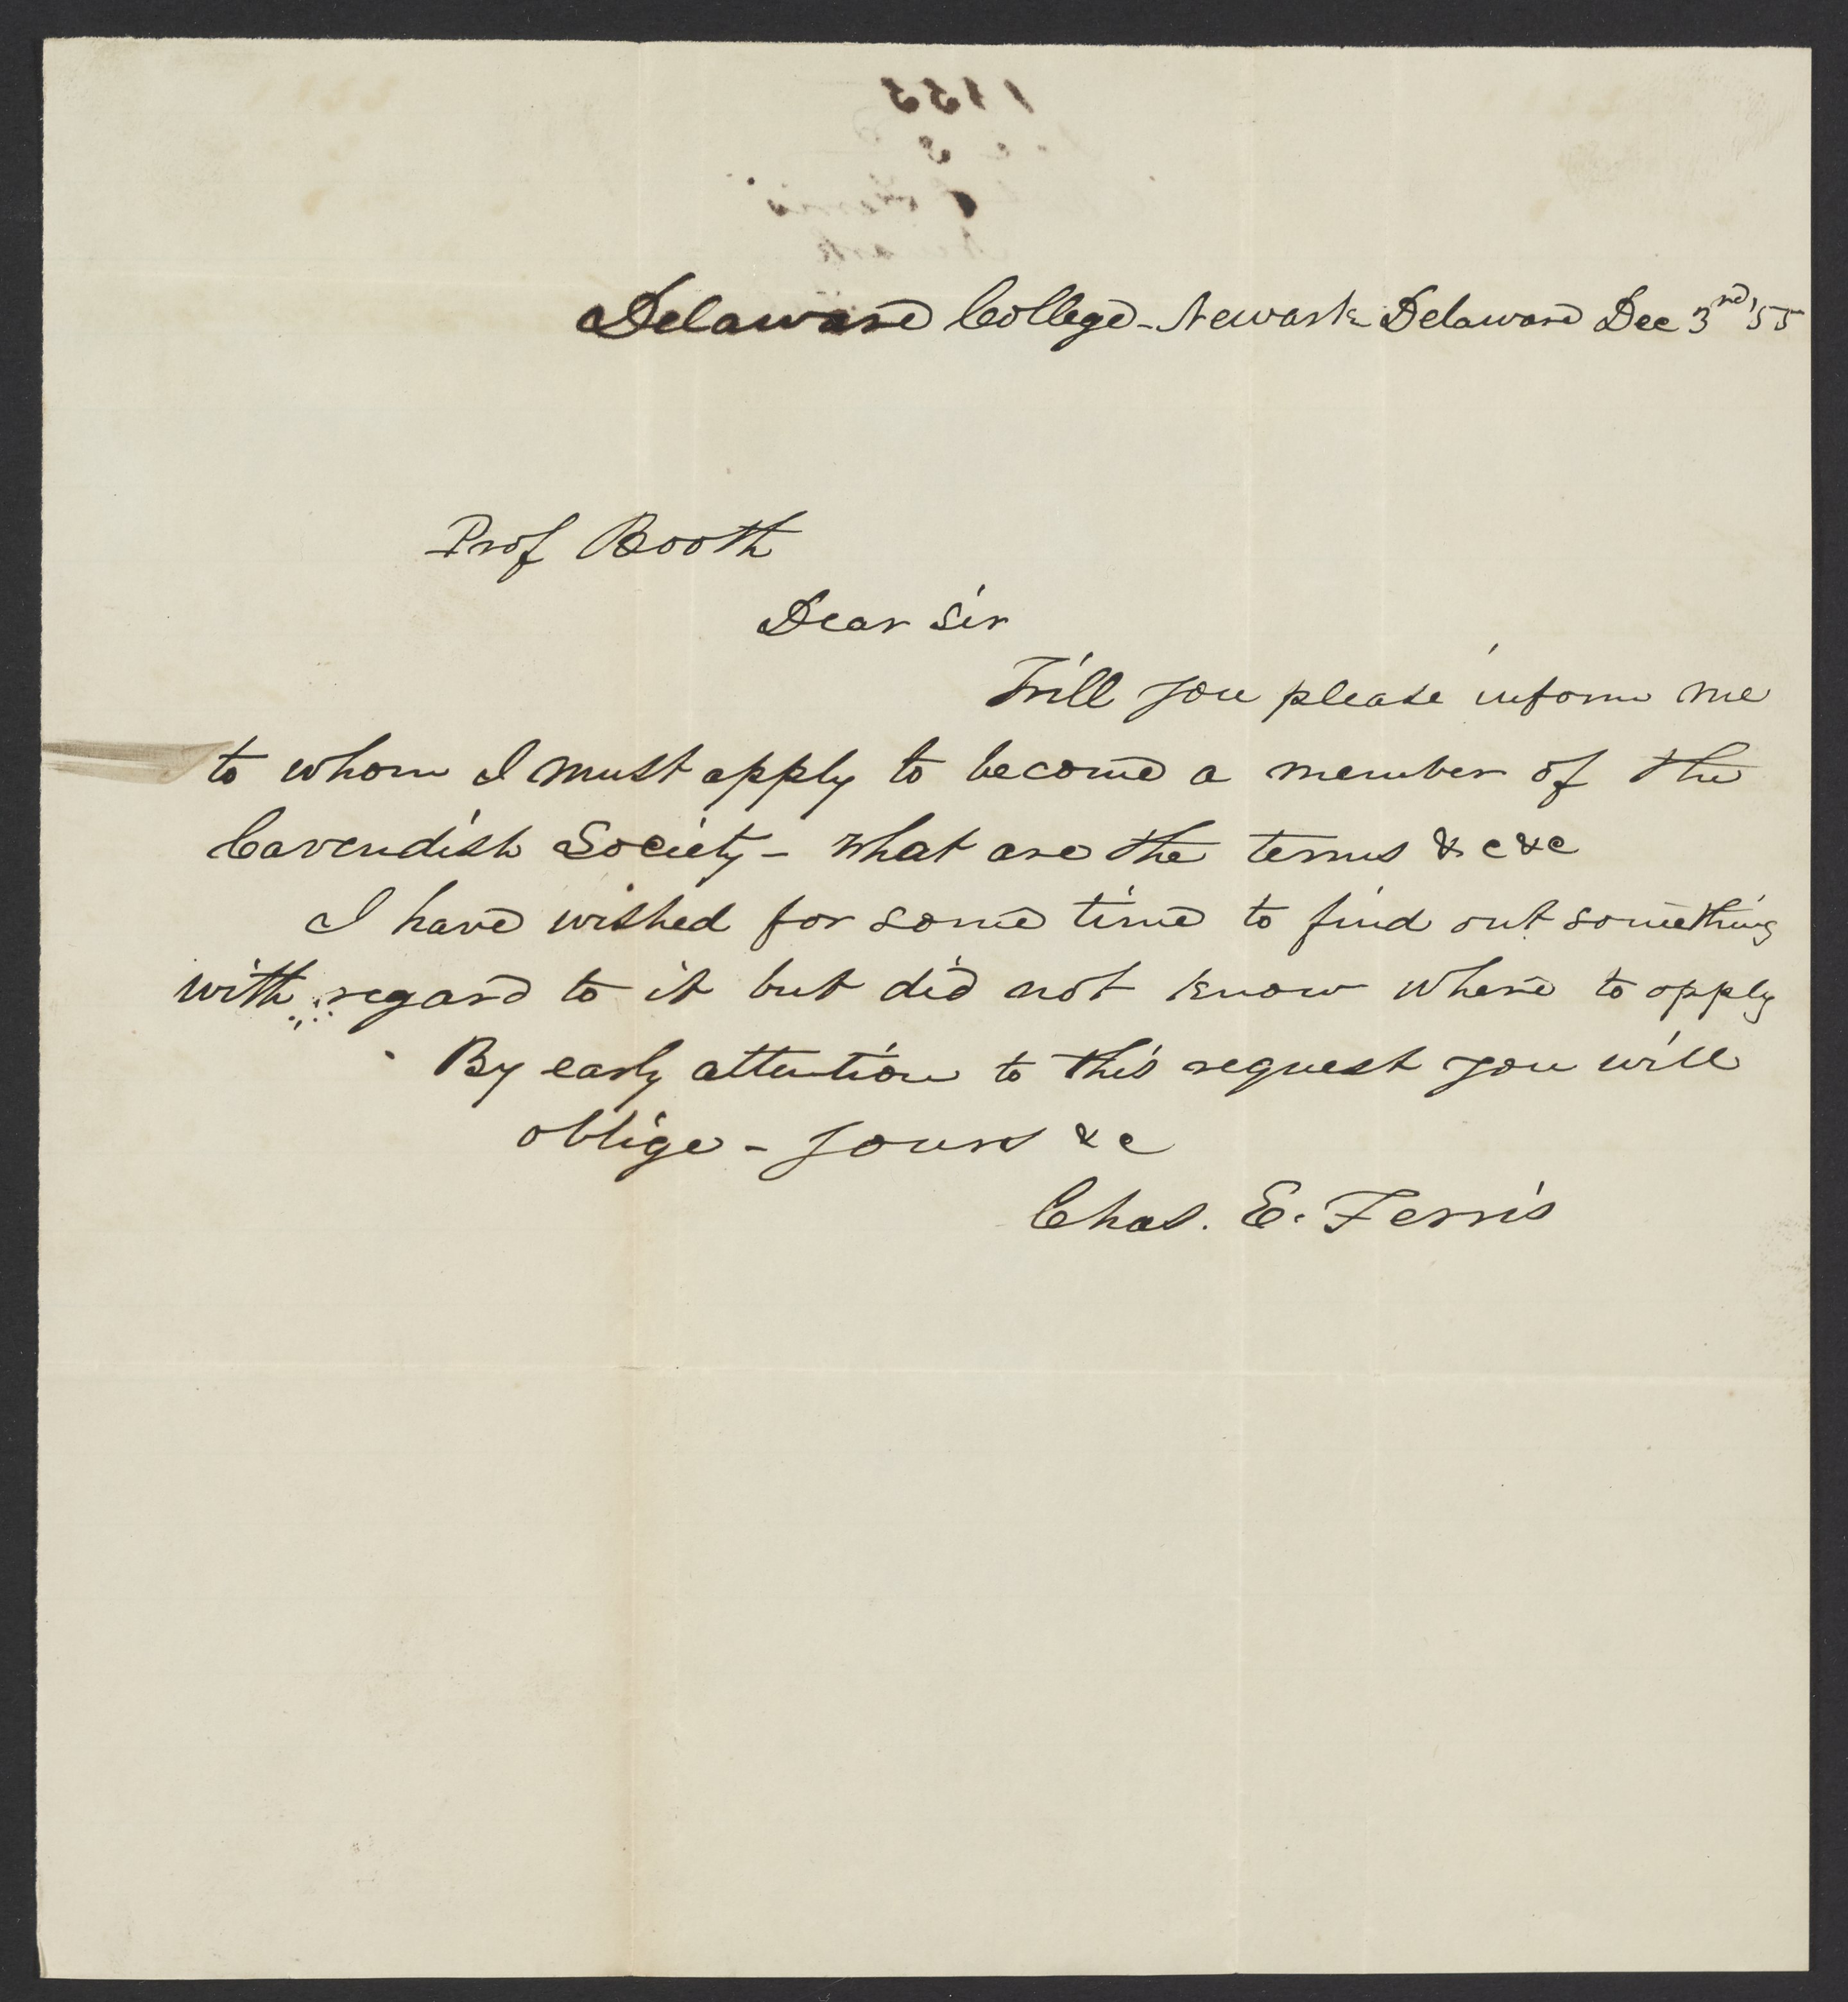 Delaware College - Newark Delaware Dec 3rd '55
Prof Booth
Dear Sir
Will you please inform me
to whom I must apply to become a member of the
Cavendish Society - What are the terms &c &c
I have wished for some time to find out something
with regard to it but did not know where to apply
By early attention to this request you will
oblige - Yours &c
Chas. E. Ferris